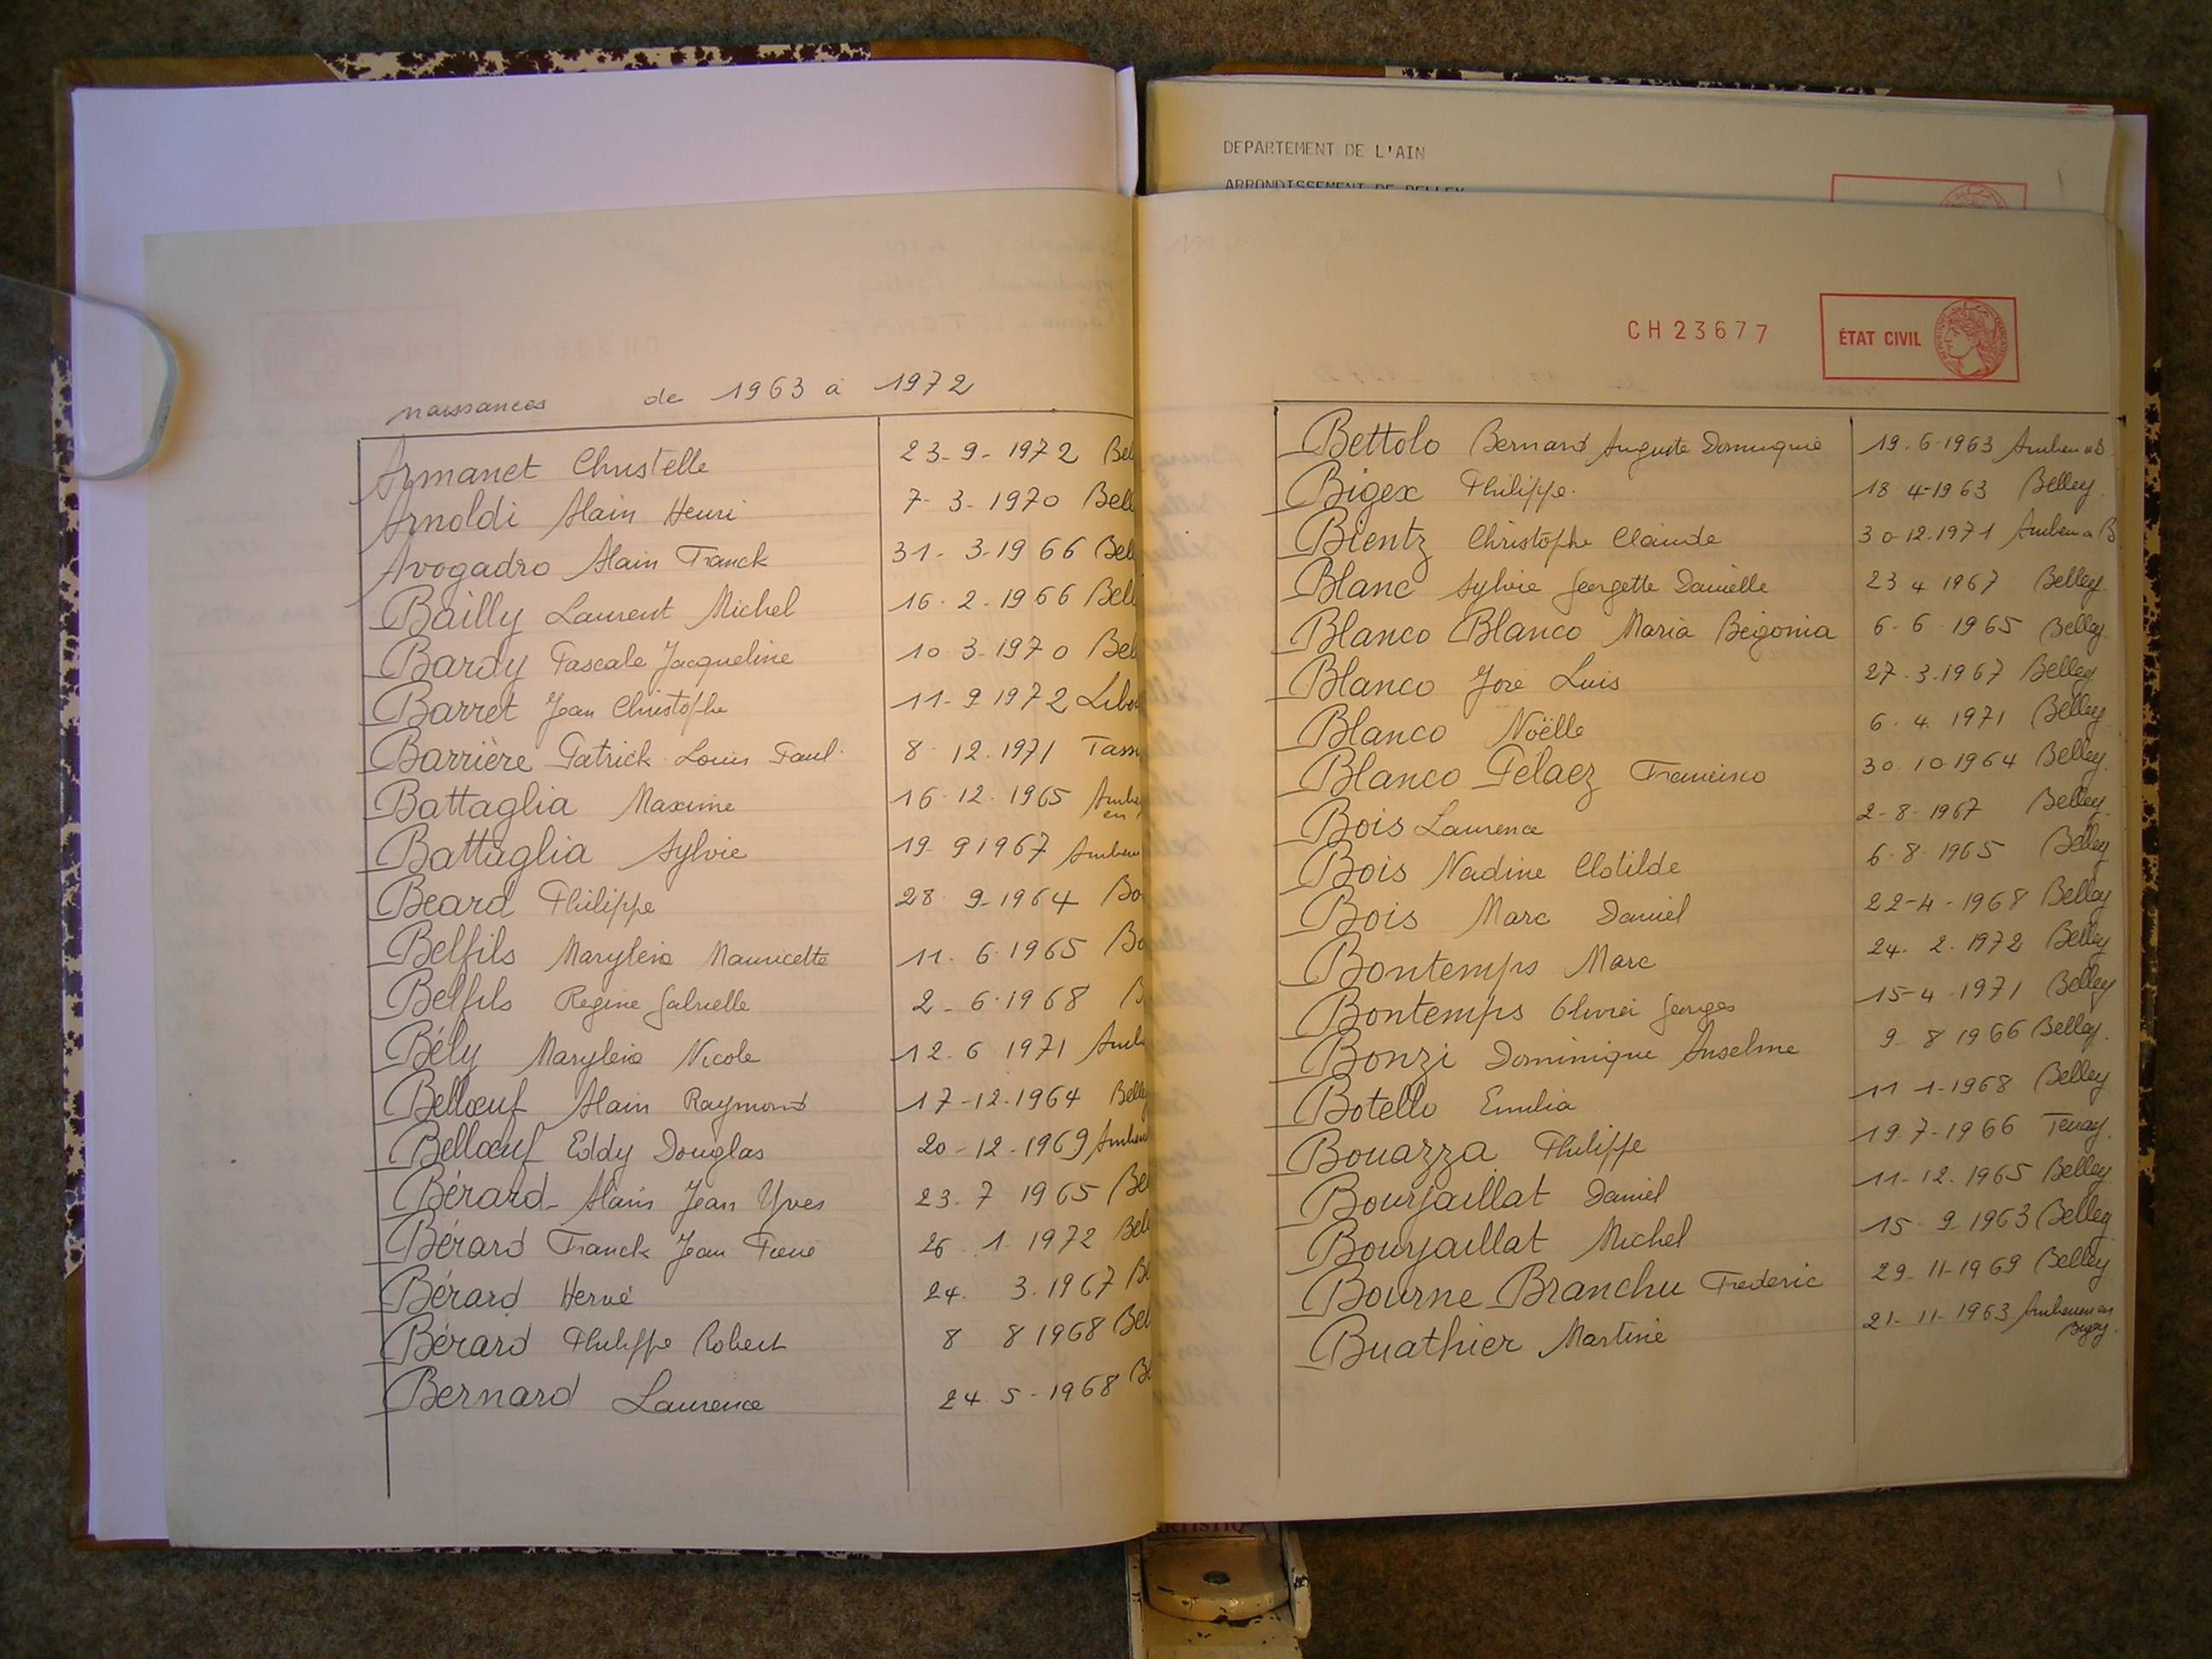 DEPARTEMENT DE L'AIN
ARRONDISSEMENT DE BELLEY
naissances de 1963 à 1972
Armanet Christelle 23-9-1972 Bel
Arnoldi Alain Henri 7-3-1970 Bell
Avogadro Alain Franck 31-3-1966 Bel
Bailly Laurent Michel 16.2.1966 Bell
Bardy Pascale Jacqueline 10 3-1970 Bel
Barret Jean Christophe 11-9 1972 Libou
Barrière Patrick Louis Paul 8 12.1971 Tass
Battaglia Maxime 16.12.1965 Ambe
en
Battaglia Sylvie 19-9 1967 Ambe
Beard Philippe 28-9-1964 Bo
Belfils Marylène Mauricette 11.6.1965 Bo
Belfils Régine Gabrielle 2-6.1968 B
Bély Marylène Nicole 12.6 1971 Amb
Bellœuf Alain Raymond 17-12.1964 Belley
Bellœuf Eddy Douglas 20-12-1969 Ambe
Bérard Alain Jean Yves 23.7 1965 Be
Bérard Franck Jean René 26 1.1972 Bel
Bérard Hervé 24. 3.1967 Be
Bérard Philippe Robert 8 8 1968 Bel
Bernard Laurence 24 5-1968 Be
CH23677
ÉTAT CIVIL
Bettolo Bernard Auguste Dominique 19.6.1963
Bigex Philippe. 18 4-1963 Belley.
Bientz Christophe Claude 30-12.1971 Amb en B
Blanc Sylvie Georgette Danielle 23 4 1967 Belley.
Blanco Blanco Maria Bégonia 6-6 1965 Belley.
Blanco José Luis 27.3.1967 Belley
Blanco Noëlle 6.4.1971 Belley
Blanco Pelaez Francisco 30.10.1964 Belley.
Bois Laurence 2-8-1967 Belley.
Bois Nadine Clotilde 6.8.1965 Belley
Bois Marc Daniel 22-4-1968 Belley
Bontemps Marc 24.2.1972 Belley
Bontemps Olivier Georges 15-4-1971 Belley
Bonzi Dominique Anselme 9-8 1966 Belley.
Botello Emilia 11 1-1968 Belley
Bouazza Philippe 19 7-1966 Tenay.
Bourjaillat Daniel 11-12.1965 Belley
Bourjaillat Michel 15 9-1963 Belley
Bourne Branchu Frédéric 29-11-1969 Belley
Buathier Martine 21-11-1963 Ambérieu en
Bugey.